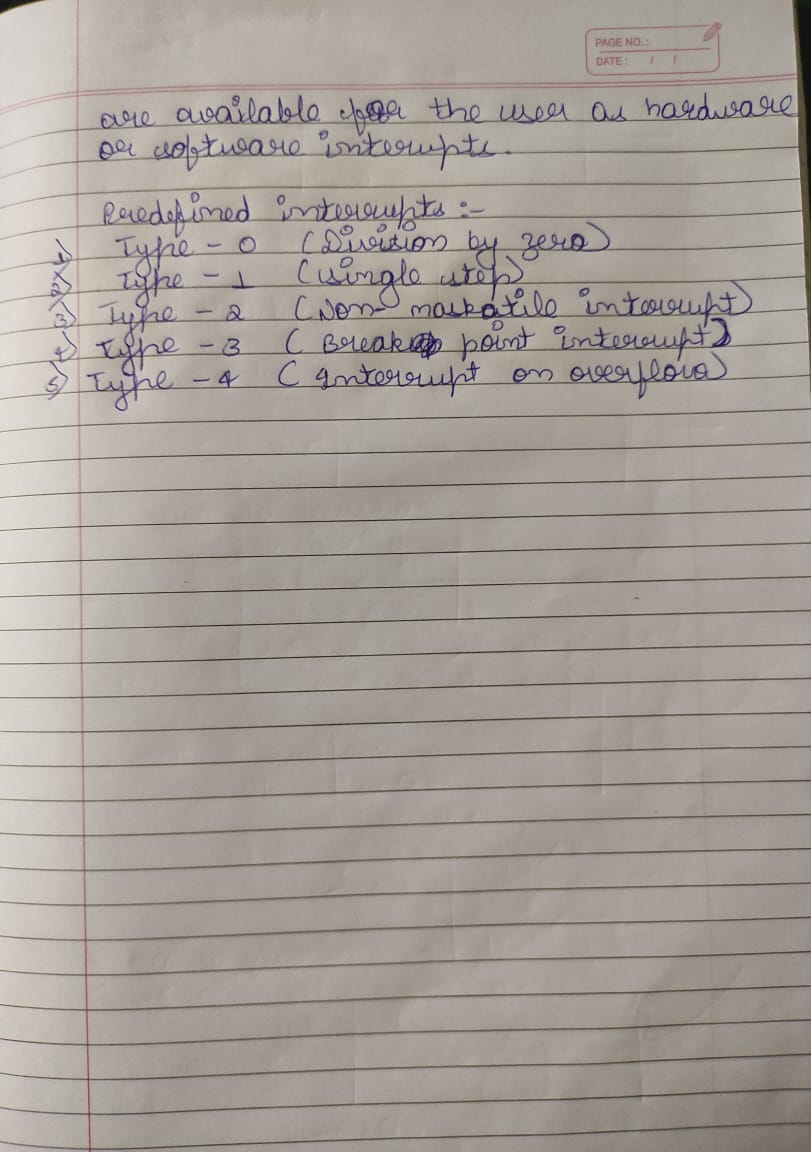 PAGE NO.:
DATE: / /
are available for the user as hardware
or software interrupts.
Predefined interrupts :-
1) Type - 0 (Division by zero)
2) Type - 1 (single step)
3) Type - 2 (Non- maskable interrupt)
4) Type - 3 ( Break point interrupt)
5) Type - 4 ( Interrupt on overflow)